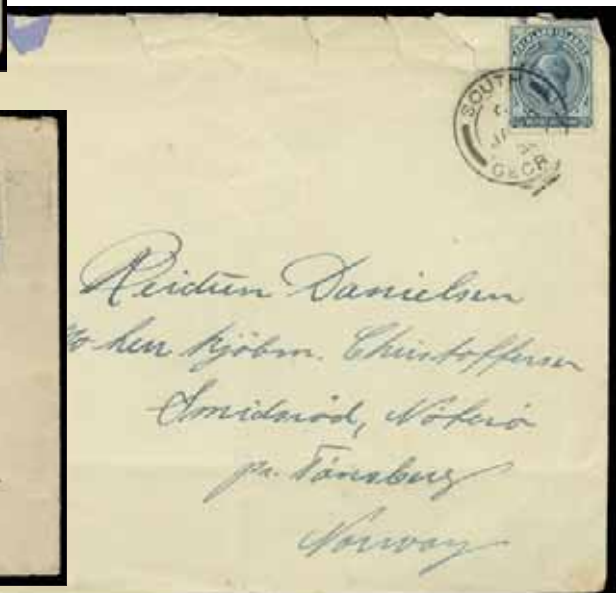 FALKLAND ISLANDS
SOUTH
JA
GEOR
Reidun Danielsen
c/o herr Kjöbm. Christoffersen
Smidsröd, Nöterö
pr. Tönsberg
Norway